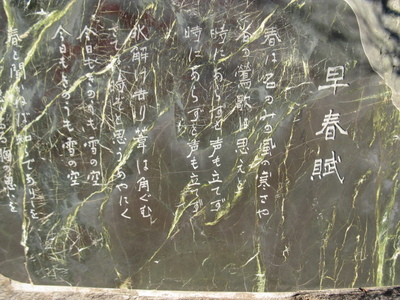 早春賦
春は名のみの風の寒さや
谷の鶯歌は思えど
時にあらずと声も立てず
時にあらずと声も立てず
氷解け去り葦は角ぐむ
さては時ぞと思うあやにく
今日もきのうも雪の空
今日もきのうも雪の空
春と聞かねば知らでありしを